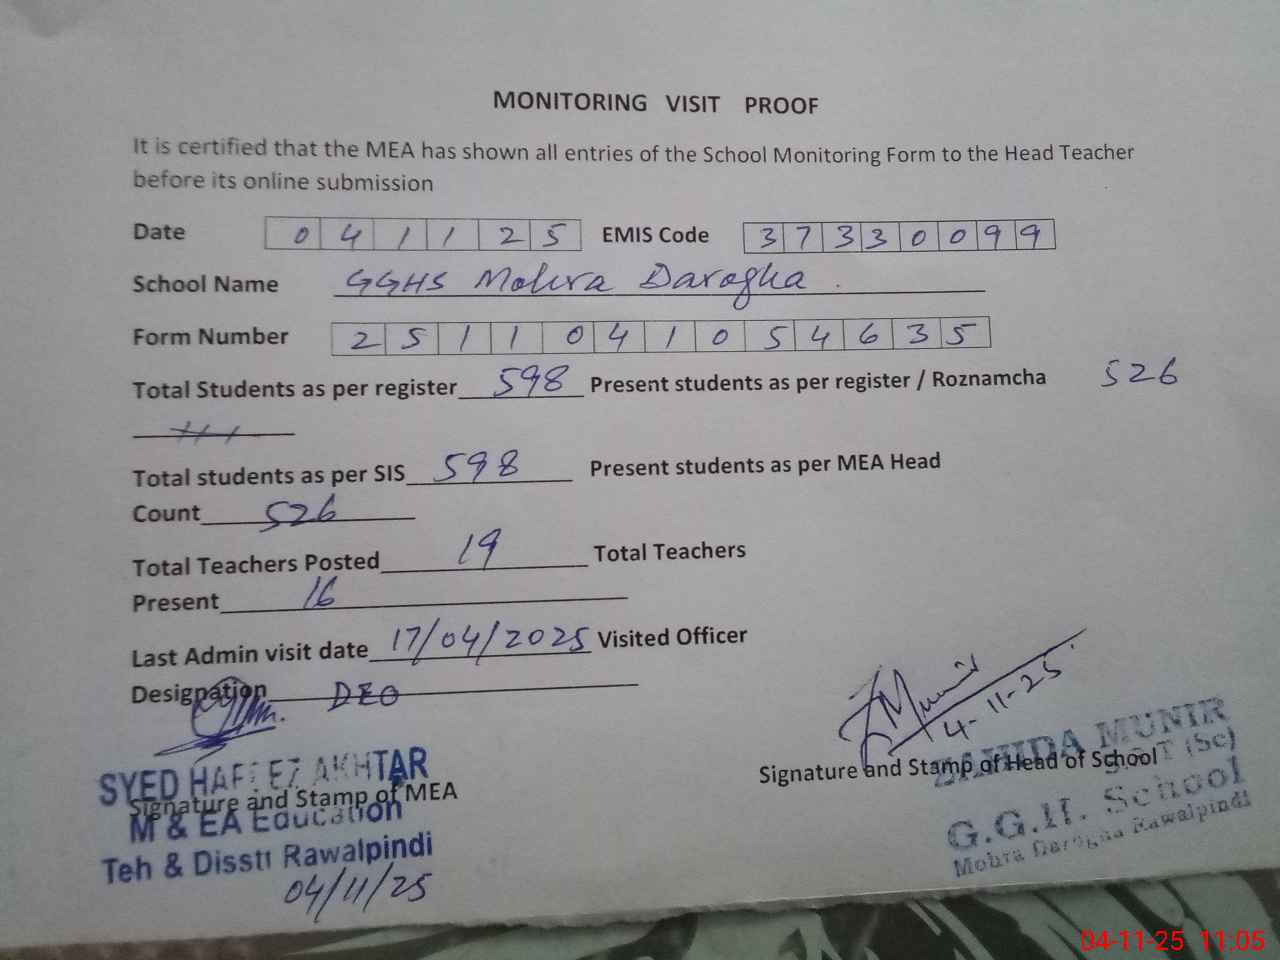 MONITORING VISIT PROOF
It is certified that the MEA has shown all entries of the School Monitoring Form to the Head Teacher
before its online submission
Date 0 4 1 1 2 5 EMIS Code 3 7 3 3 0 0 9 9
School Name GGHS Mohra Daragha
Form Number 2 5 1 1 0 4 1 0 5 4 6 3 5
Total Students as per register 598 Present students as per register / Roznamcha 526
Total students as per SIS 598 Present students as per MEA Head
Count 526
Total Teachers Posted 19 Total Teachers
Present 16
Last Admin visit date 17/04/2025 Visited Officer
Designation DEO
Munir
4-11-25
SYED HAFEEZ AKHTAR
Signature and Stamp of MEA
M & EA Education
Teh & Disstt Rawalpindi
04/11/25
ZAHIDA MUNIR
Signature and Stamp of Head of School
S.S.T (Sc)
G.G.H. School
Mohra Daragha Rawalpindi
04-11-25 11:05